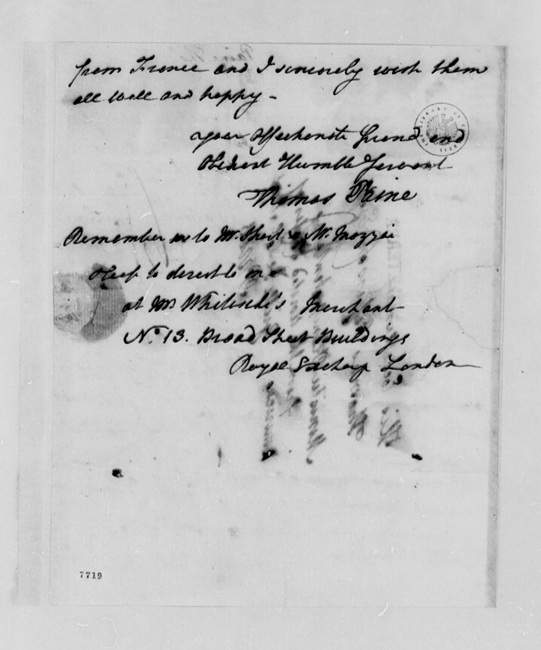 from France and I sincerely wish them
all well and happy -
your affectionate friend and
Obedient Humble Servant
Thomas Paine
Remember me to Mr. Short & Mr. Mazzei
Please to direct to me
at Mr Whiteside's Merchant
No. 13. Broad Street Buildings
Royal Exchange London
7719